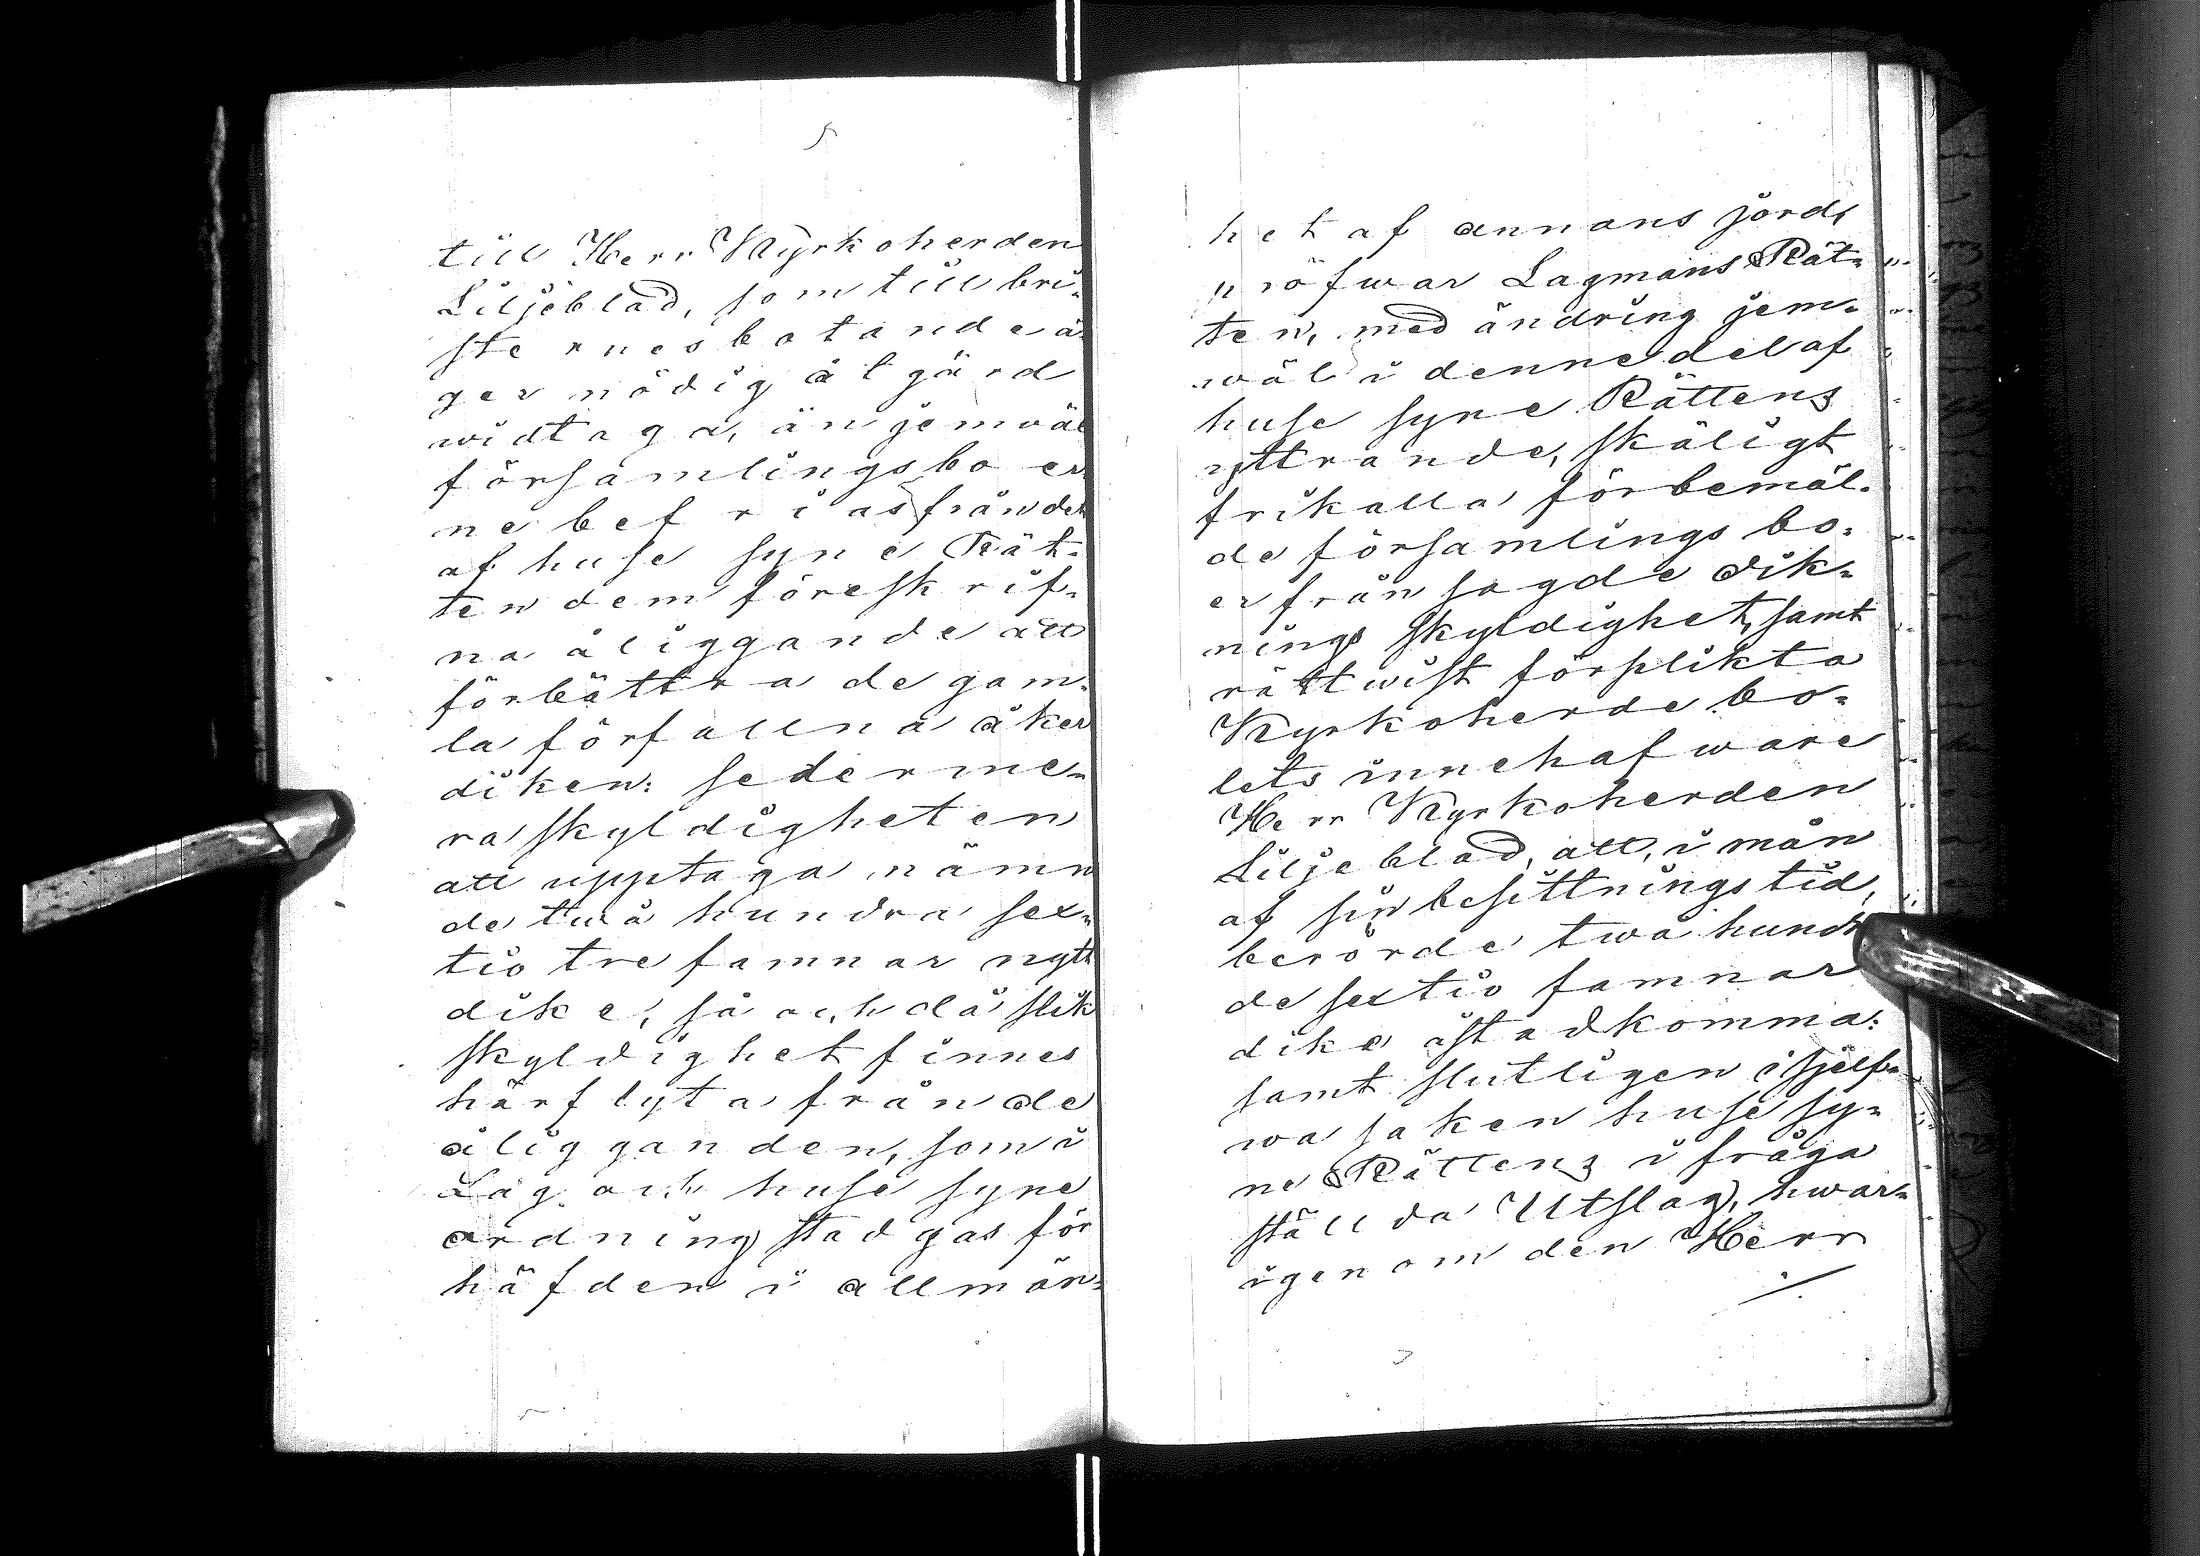 till Herr Kyrkoherden
Liljeblad, som till bri-
sternes botande ä-
ger nödig åtgärd
widtaga, än jemwäl
församlingsboer
ne befrias från det
af huse syne Rät-
ten dem föreskrif-
na åliggande att
förbättra de gam-
la förfallna åker
diken: sederme-
ra skyldigheten
att upptaga nämn
de twå hundra sex-
tio tre famnar nytt
dike, så och då slik
skyldighet finnes
härflyta från de
åligganden, som i
Lag och huse syne
ordning stadgas för
häfden i allmän-
het af annans jord,
pröfwar Lagmans Rät-
ten, med ändring jem-
wäl i denne del af
huse syne Rättens
yttrande, skäligt
frikalla förbemäl-
de församlings bo-
er från sagde dik-
nings skyldighet, samt
rättwist förplikta
Kyrkoherde bo-
lets innehafware
Herr Kyrkoherden
Liljeblad, att, i mån
af sin besittningstid,
berörde twå hundr
de sextio famnar
dike åstadkomma:
samt slutligen i sjelf-
wa saken huse sy-
ne Rättens i fråga
ställda Utslag, hwar-
igenom den Herr
./.